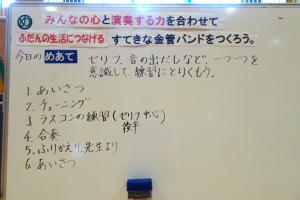 め みんなの心と演奏する力を合わせて
ふだんの生活につなげる すてきな金管バンドをつくろう。
今日のめあて セリフ、音の出だしなど、一つ一つを
意識して、練習にとりくもう。
1. あいさつ
2. チューニング
3. ラスコンの練習(セリフ中心)
後半
4. 合奏
5. ふりかえり、先生より
6. あいさつ